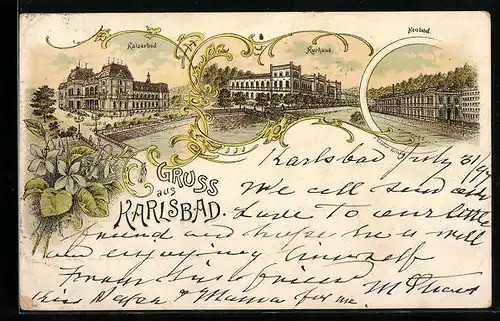 Kaiserbad
Kurhaus
Neubad.
GRUSS
aus
KARLSBAD.
Karlsbad July 31/97
We all send our
Love to our little
friend and hope he is well
and enjoying himself
From his friend
Kiss Papa & Mama for me